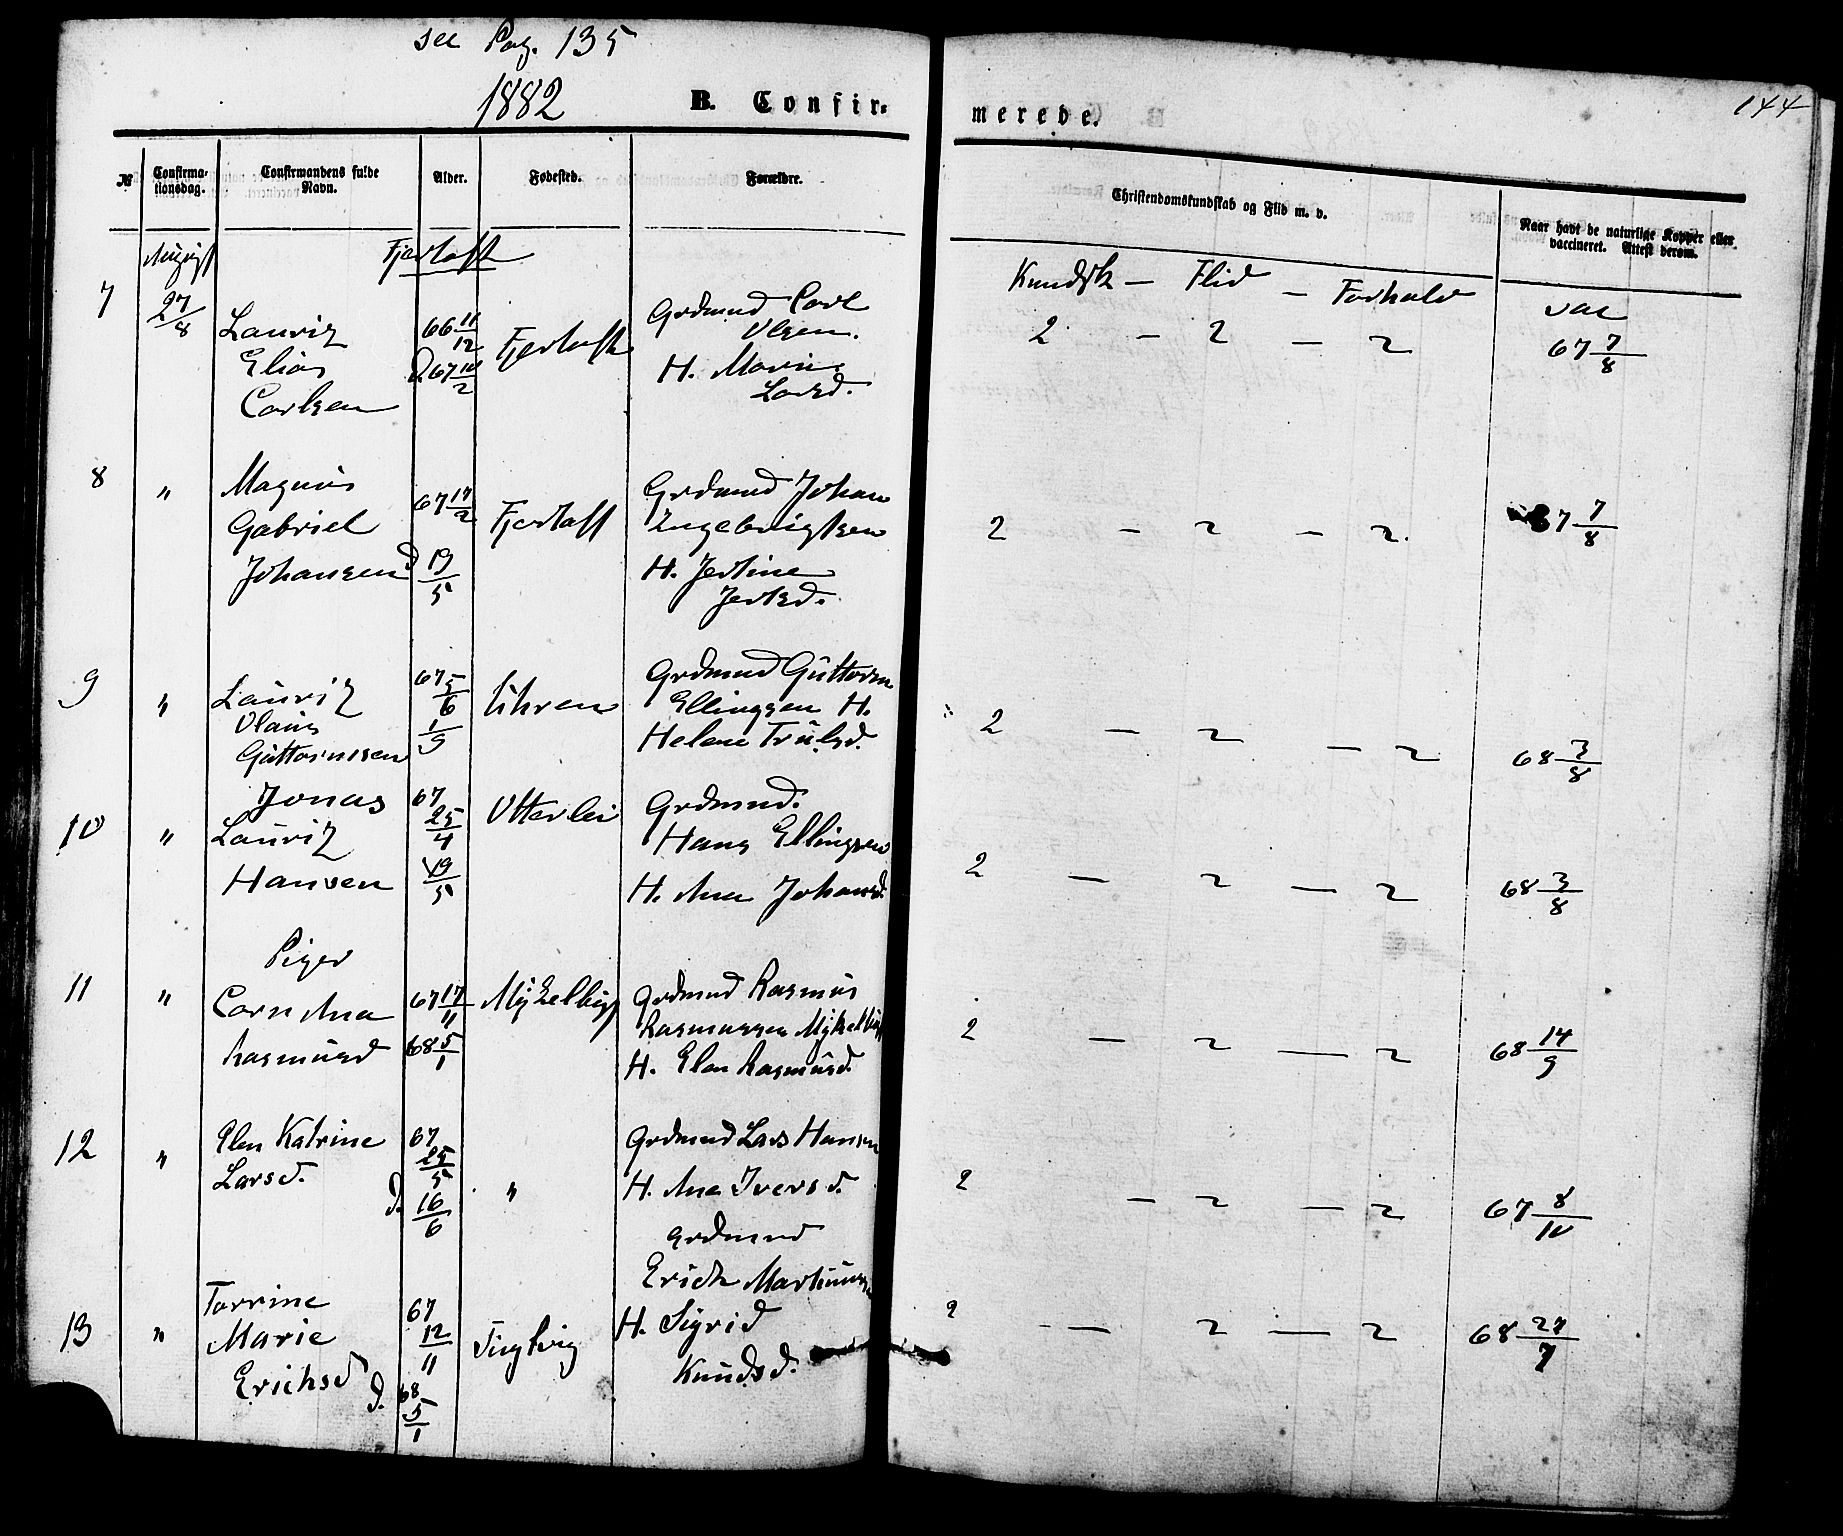 see Pag. 135
1882 B. Confir- merede. 144
№ Confirma-tionsdag. Confirmandens fulde Navn. Alder. Fødested. Forældre. Christendomskundskab og Flid m. v. Naar havt de naturlige Kopper eller vaccineret. Attest derom.
Fjertoft
Kundsk — Flid — Forhold vac
7 27/8 Lauriz 66 11/12 Fjertoft Grdmand Carl 2 — 2 — 2 67 7/8
Elias D 67 10/2 Olsen.
Carlsen H. Marie
Larsd.
8 " Magnus 67 17/2 Fjertoft Grdmand Johan 2 — 2 — 2. 67 7/8
Gabriel Engebrigtsen
Johansen D 19/5 H. Jertine
Jertsd.
9 " Lauriz 67 5/6 Uhren Grdmand Guttorm 2 — 2 — 2 68 3/8
Olaus 1/9 Ellingsen H.
Guttormsen Helene Trulsd.
Jonas 67 Otterlei Grdmand.
10 " Lauriz 25/4 Hans Ellingsen 2 — 2 — 2 68 3/8
Hansen 19/5 H. Ana Johansd.
Piger
11 " Corn Ana 67 17/11 Mykelbug Grdmand Rasmus 2 — 2 — 2 68 14/9
Rasmusd 68 5/1 Rasmussen
H. Elen Rasmusd.
12 " Elen Katrine 67 25/5 " Grdmand Lars Hansen 2 — 2 — 2 67 8/10
Larsd. D. 16/6 H. Ane Iversd.
Grdmand
Erich Martinussen
13 " Torrine 67 12/11 H. Sigrid 2 — 2 — 2 68 27/7
Marie Knudsd.
Erichsd D. 68 5/1